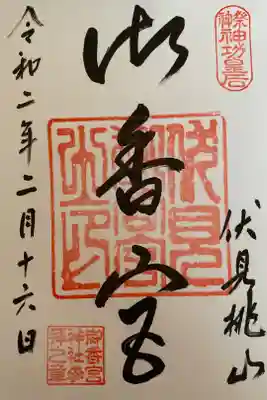 祭神神功皇后
伏見桃山
御香宮
伏見御香宮之印
令和二年二月十六日